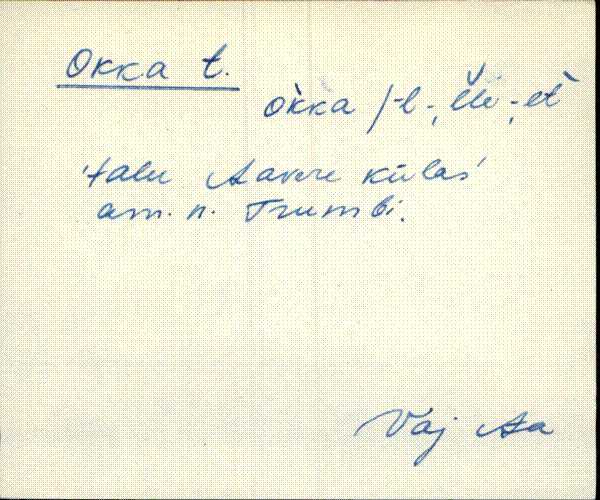 Okka t.
òkka /-l-, èlè -, et̀
'talu Aavere külas'
am. n. Trumbi.
Vaj Aa